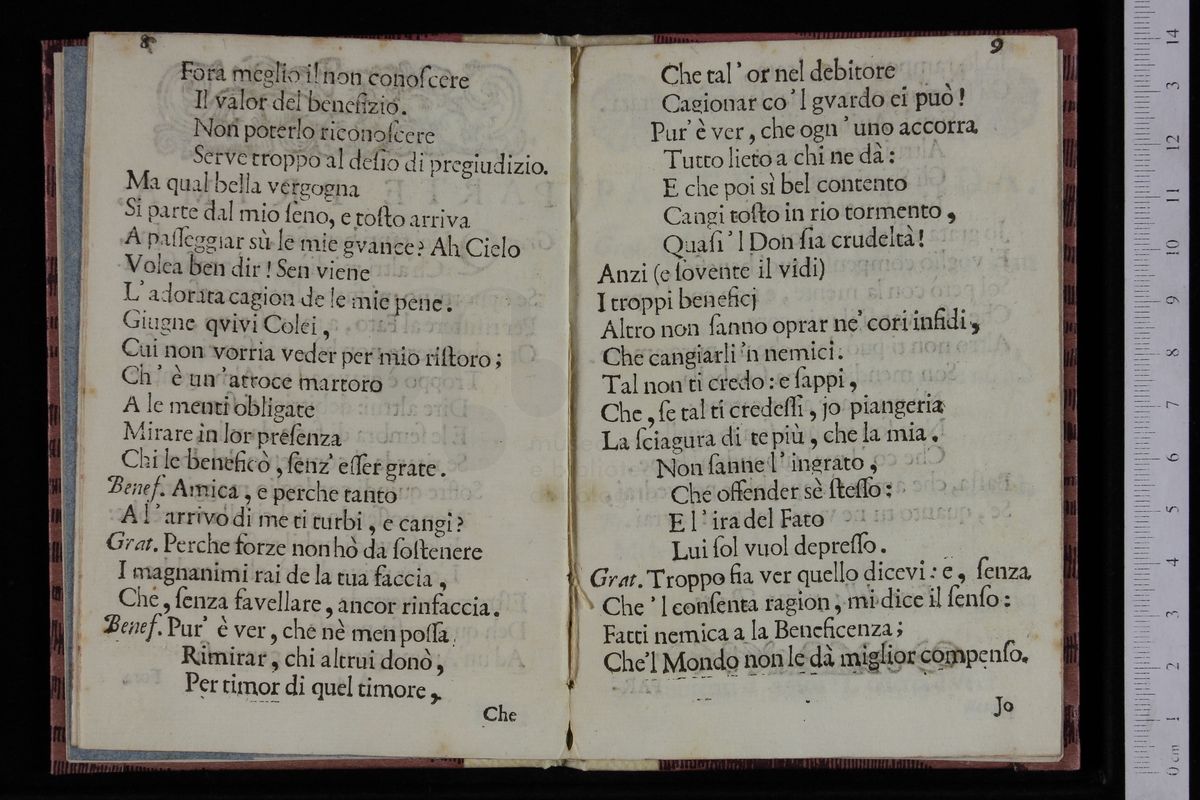 8
Fora meglio il non conoſcere
Il valor del benefizio.
Non poterlo riconoſcere
Serve troppo al deſio di pregiudizio.
Ma qual bella vergogna
Si parte dal mio ſeno, e toſto arriva
A paſſeggiar sù le mie gvance? Ah Cielo
Volea ben dir! Sen viene
L' adorata cagion de le mie pene.
Giugne qvivi Colei,
Cui non vorria veder per mio riſtoro;
Ch' è un' atroce martoro
A le menti obligate
Mirare in lor preſenza
Chi le beneficò, ſenz' eſſer grate.
Benef. Amica, e perche tanto
A l' arrivo di me ti turbi, e cangi?
Grat. Perche forze non hò da ſoſtenere
I magnanimi rai de la tua faccia,
Che, ſenza favellare, ancor rinfaccia.
Benef. Pur' è ver, che nè men poſſa
Rimirar, chi altrui donò,
Per timor di quel timore,
Che
9
Che tal' or nel debitore
Cagionar co 'l gvardo ei può!
Pur' è ver, che ogn' uno accorra
Tutto lieto a chi ne dà:
E che poi sì bel contento
Cangi toſto in rio tormento,
Quaſi 'l Don ſia crudeltà!
Anzi (e ſovente il vidi)
I troppi beneficj
Altro non ſanno oprar ne' cori infidi,
Che cangiarli 'n nemici.
Tal non ti credo: e ſappi,
Che, ſe tal ti credeſſi, jo piangeria
La ſciagura di te più, che la mia.
Non ſanne l' ingrato,
Che offender sè ſteſſo:
E l' ira del Fato
Lui ſol vuol depreſſo.
Grat. Troppo fia ver quello dicevi: e, ſenza
Che 'l conſenta ragion, mi dice il ſenſo:
Fatti nemica a la Beneficenza;
Che'l Mondo non le dà miglior compenſo.
Jo
14
13
12
11
10
9
8
7
6
5
4
3
2
1
0 cm